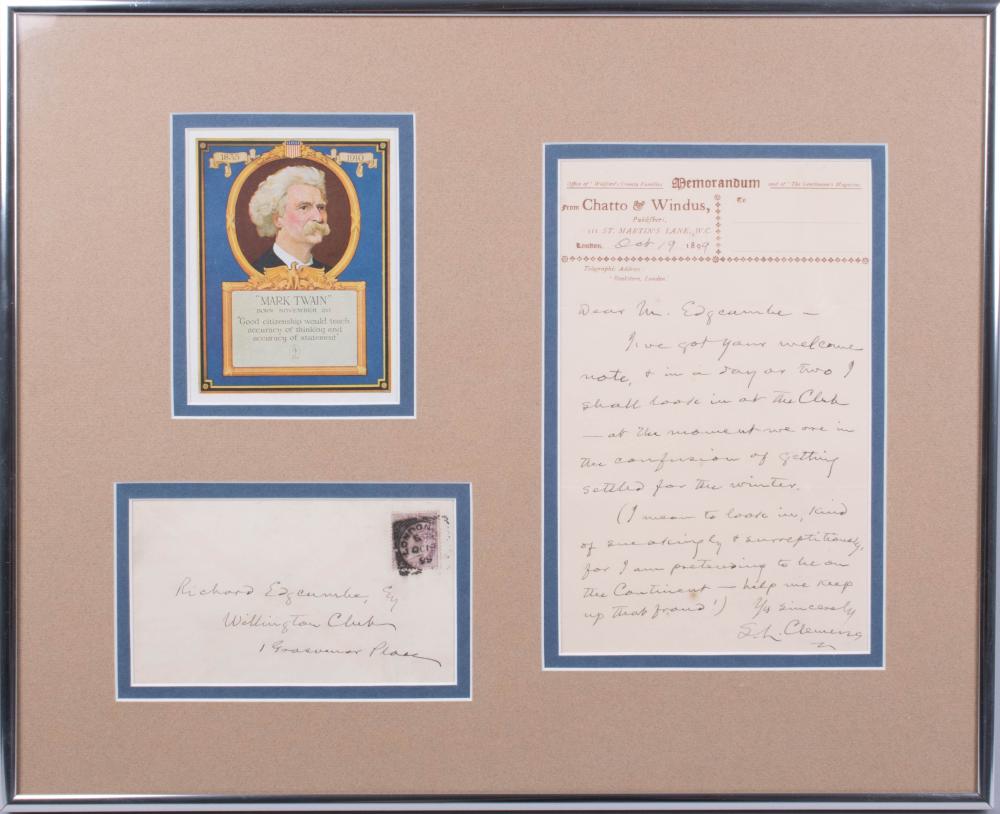 1835 1910
"MARK TWAIN"
BORN NOVEMBER
"Good citizenship would teach
accuracy of thinking and
accuracy of statement"
Richard Edgcumbe, Esq
Wellington Club
1 Grosvenor Place
LONDON
OC 19
99
Office of "Walford's County Families Memorandum and of "The Gentleman's Magazine.
From Chatto & Windus, To
Publishers,
111 ST. MARTIN'S LANE, W.C.
London, Oct 19 1899
Telegraphic Address:
"Bookstore, London."
Dear Mr. Edgcumbe —
I've got your welcome
note, & in a day or two I
shall look in at the Club
— at the moment we are in
the confusion of getting
settled for the winter.
(I mean to look in, kind
of sneakingly & surreptitiously,
for I am pretending to be on
the Continent — help me keep
up that fraud!) Ys sincerely
S. L. Clemens